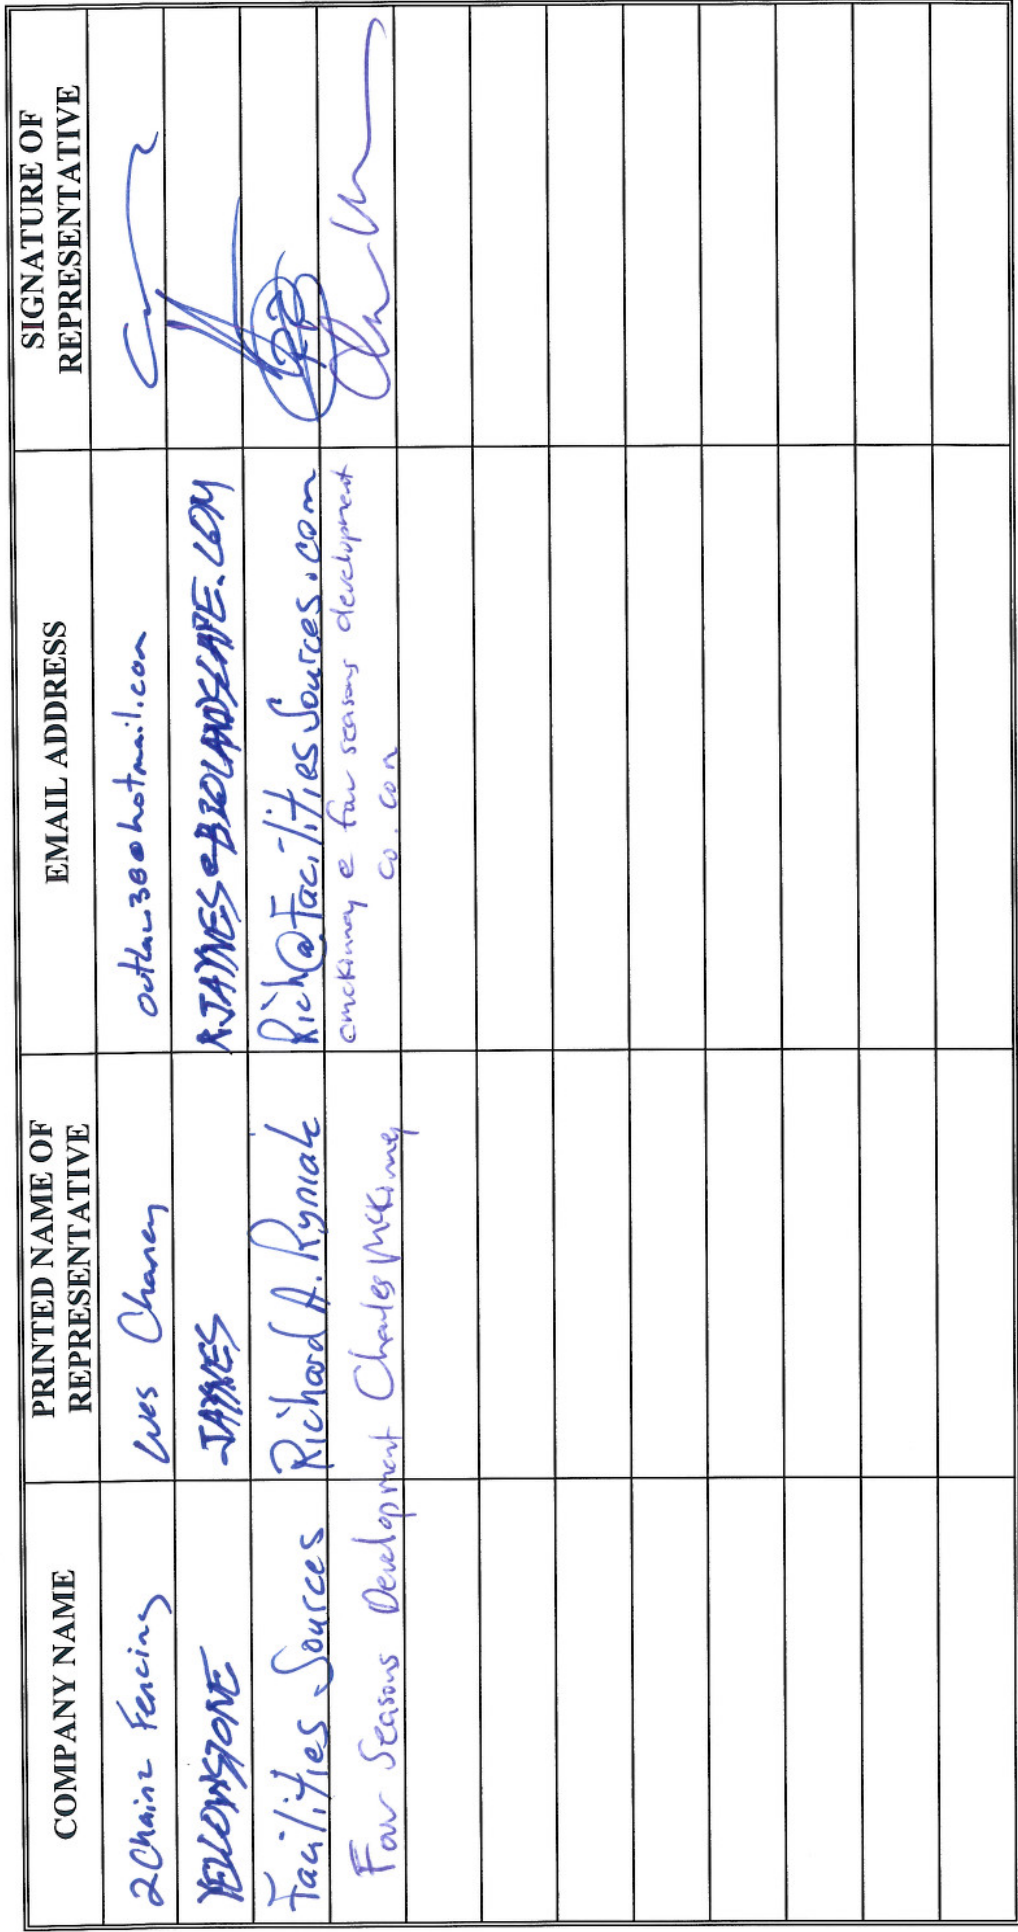 COMPANY NAME
PRINTED NAME OF
REPRESENTATIVE
EMAIL ADDRESS
SIGNATURE OF
REPRESENTATIVE
2Chainz Fencing Wes Chaney
YELLOWSTONE JAYNES
Facilities Sources Richard A. Ryniak Rich@FacilitiesSources.com
Four Seasons Development Charles McKinney cmckinney@four seasons development
co.com